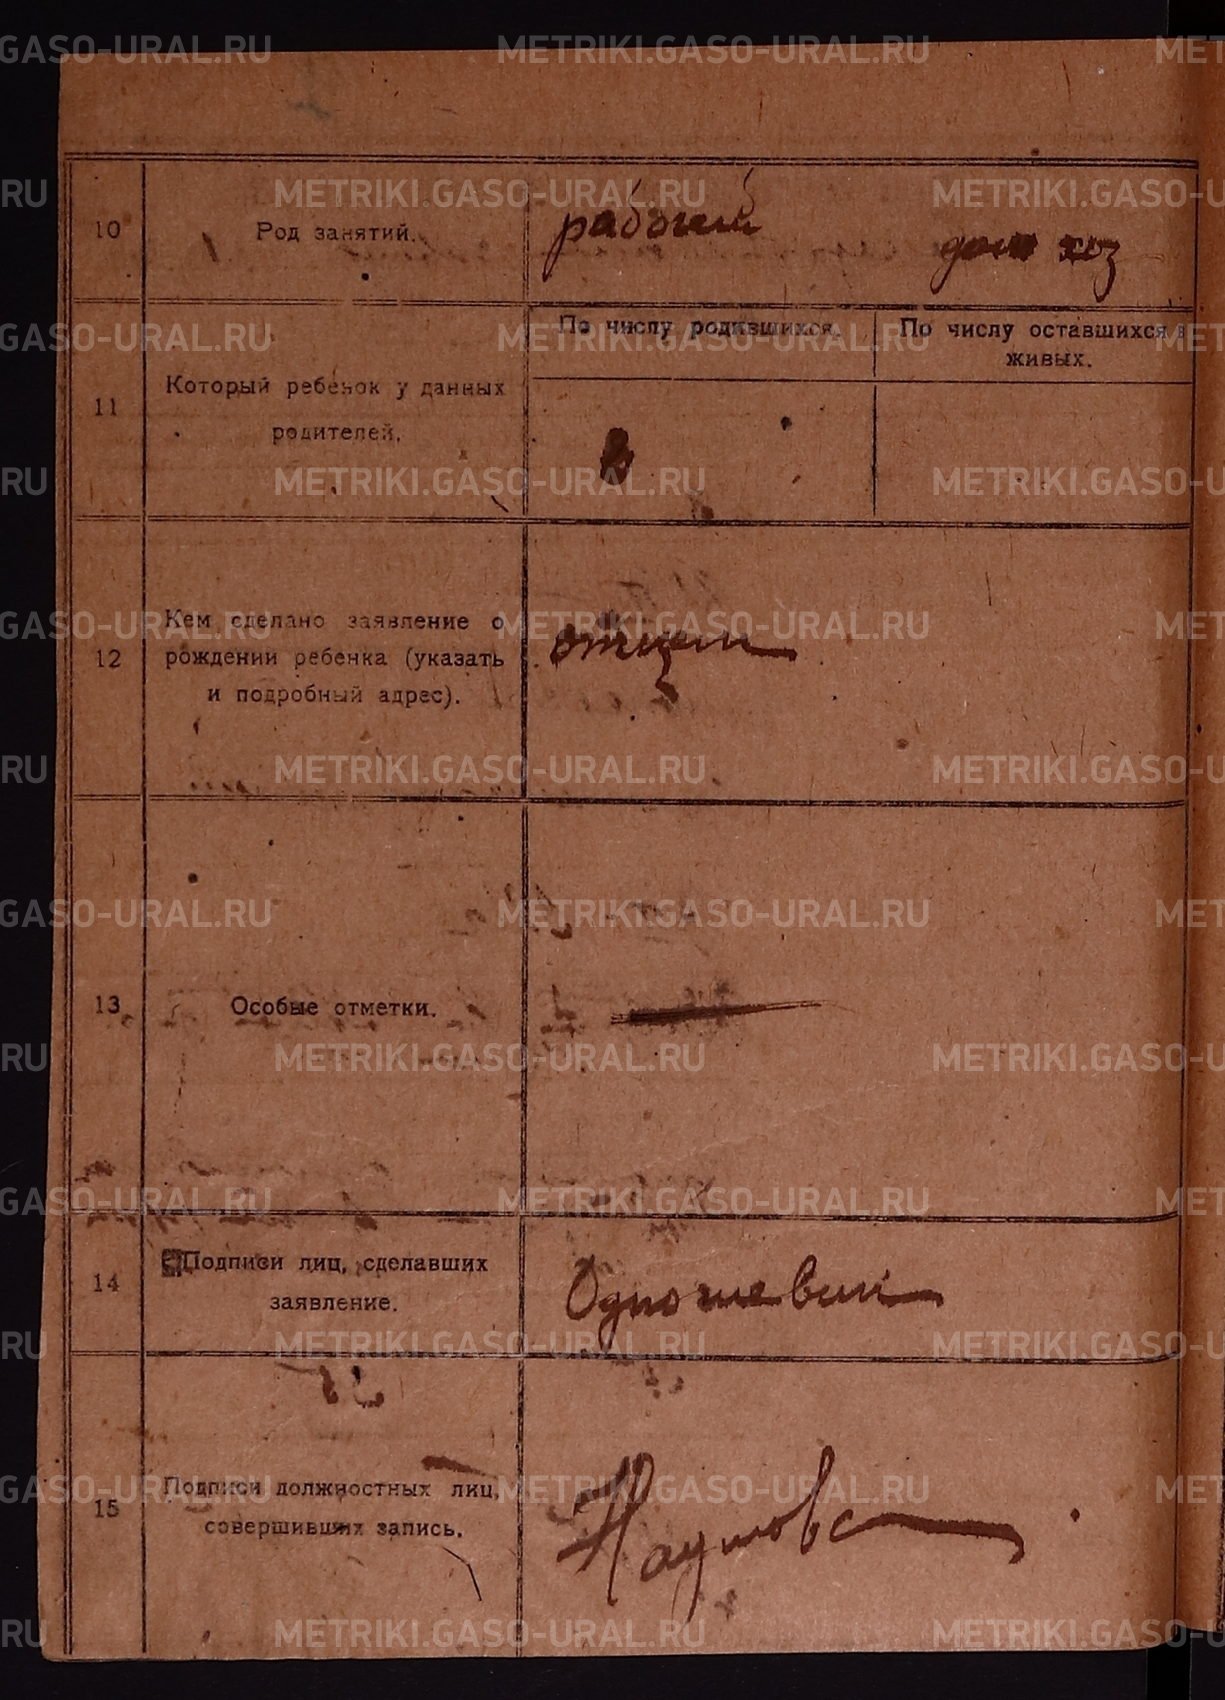 10 Род занятий. рабочий дом хоз
По числу родившихся. По числу оставшихся в
живых.
11 Который ребенок у данных
родителей.
12 Кем сделано заявление о
рождении ребенка (указать
и подробный адрес).
отцем
13 Особые отметки.
14 Подписи лиц, сделавших
заявление.
15 Подписи должностных лиц,
совершивших запись.
METRIKI.GASO-URAL.RU